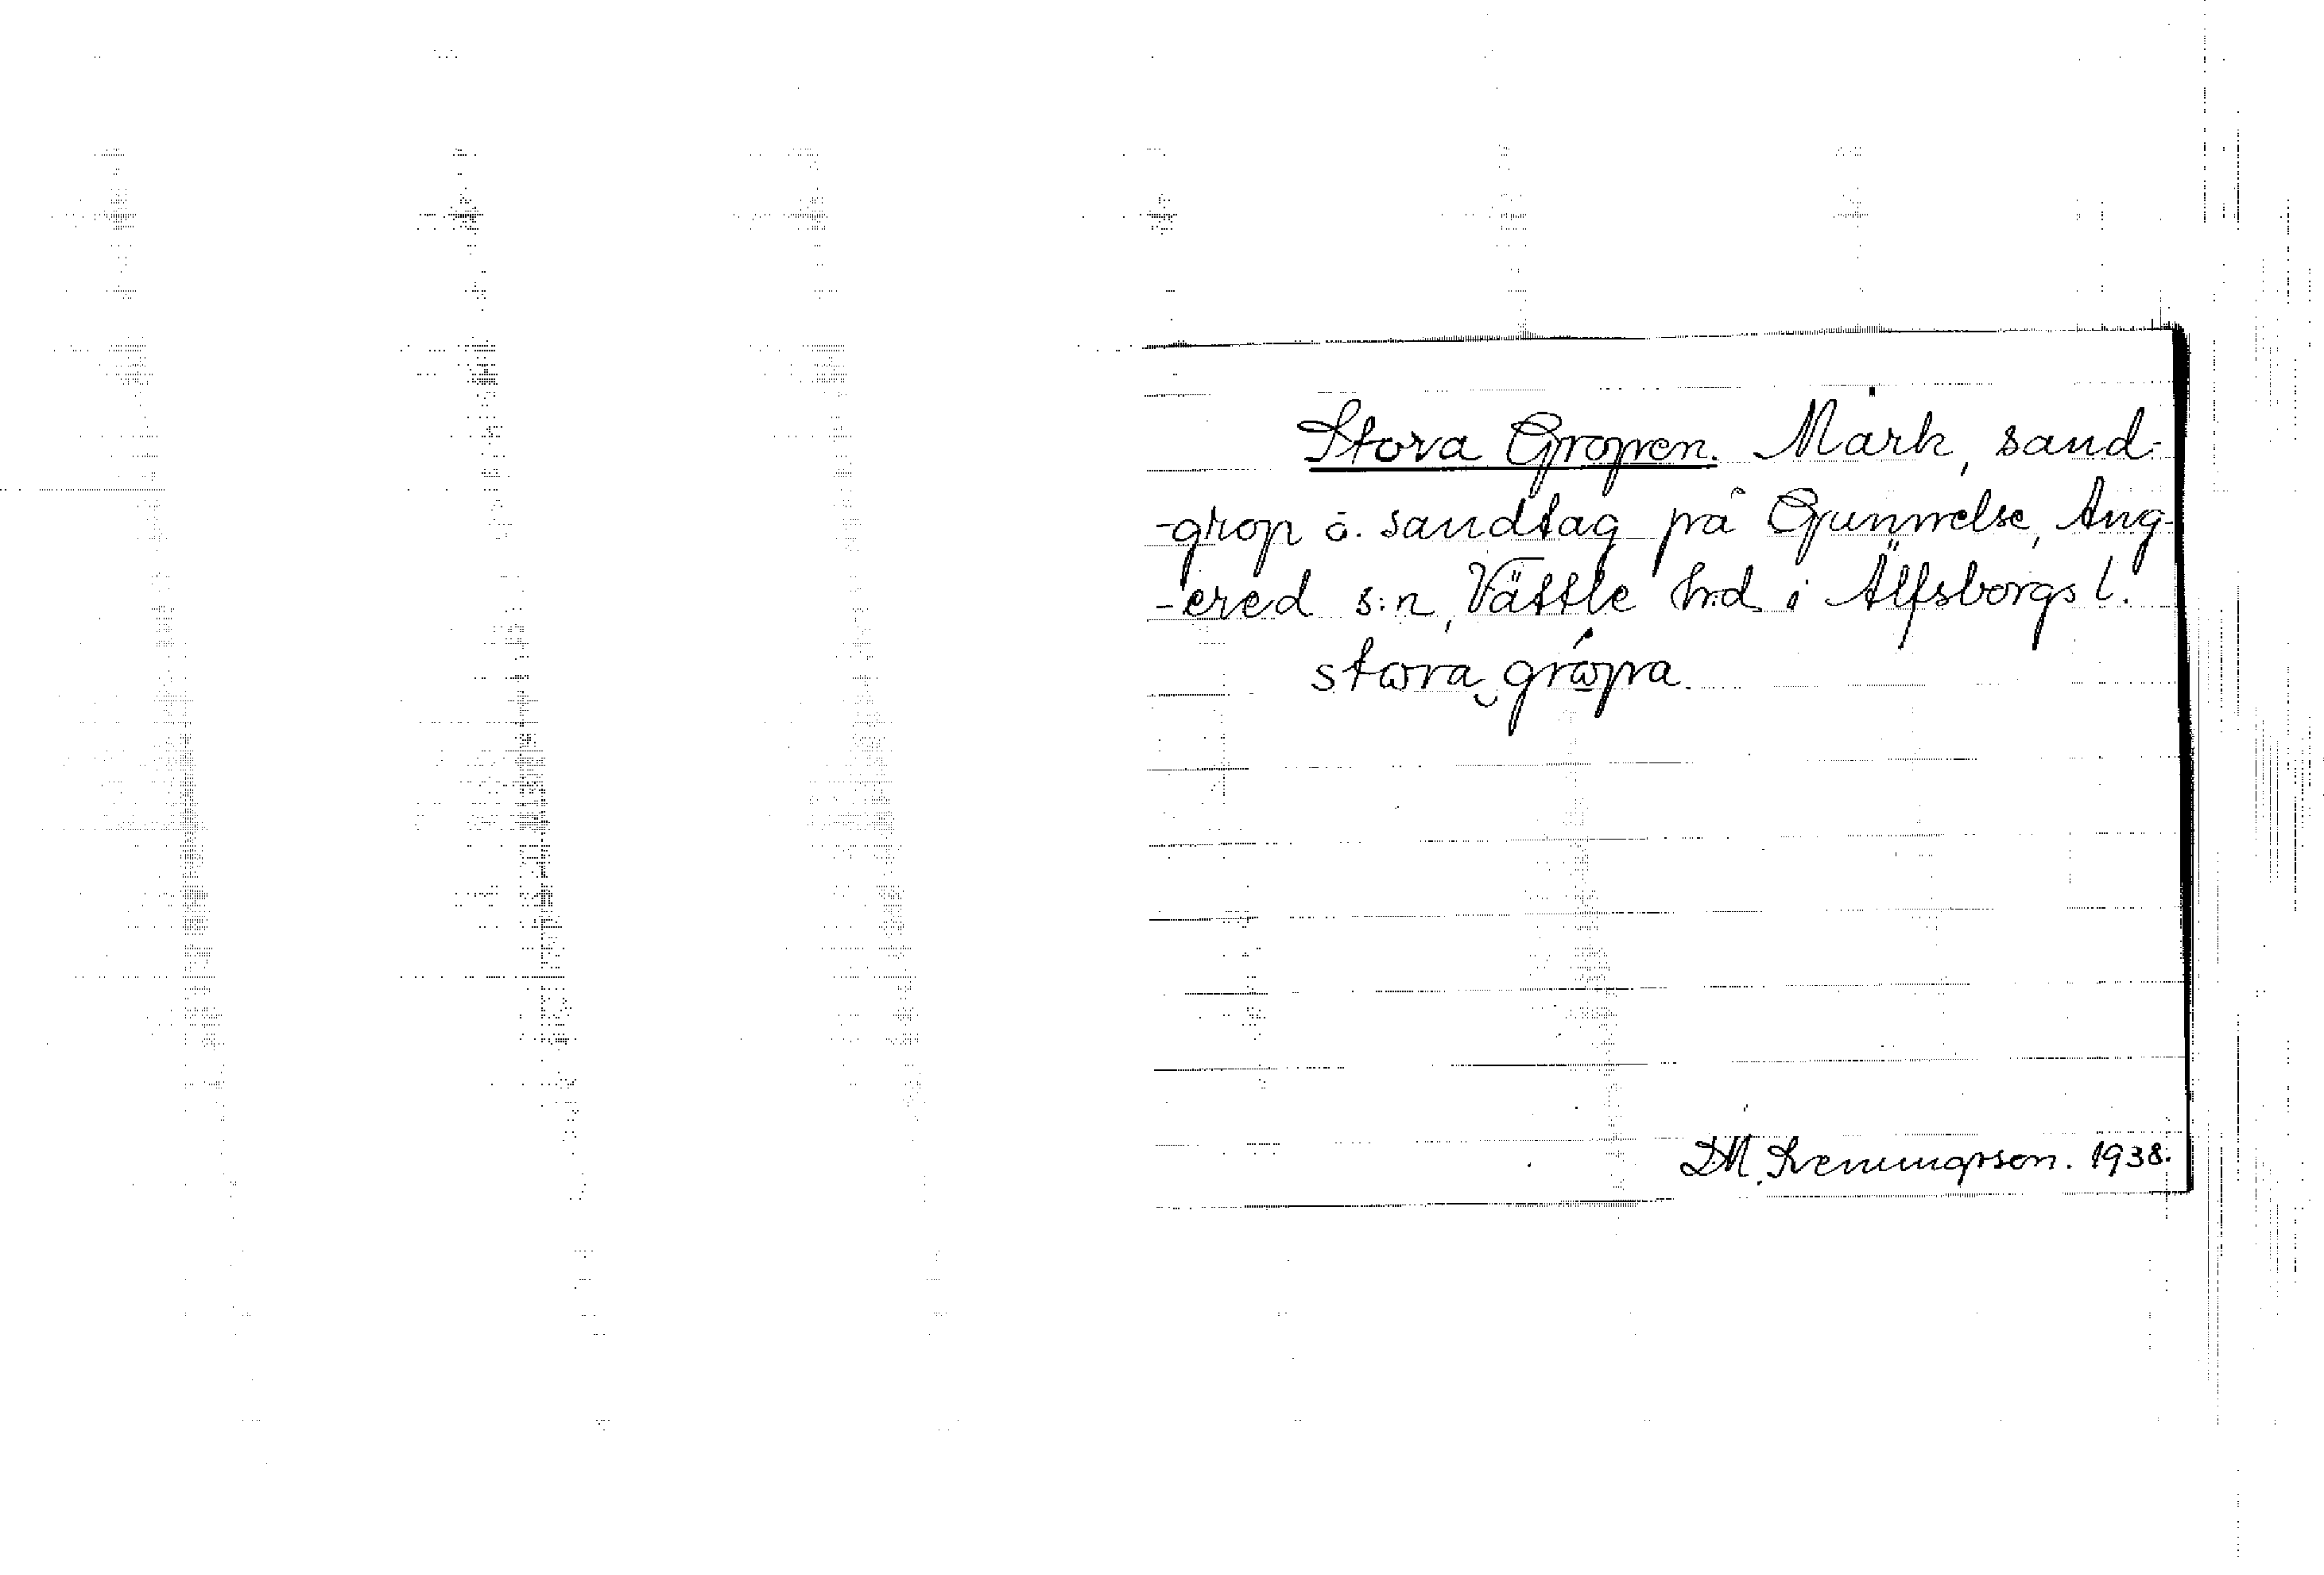 Stora Gropen. Mark, sand-
-grop o. sandtag på Gunnnelse, Ang-
-ered s:n, Vättle h:d i Älfsborgs l.
stɷra‿grɷ́pa.
D.M. Svenungsson. 1938.